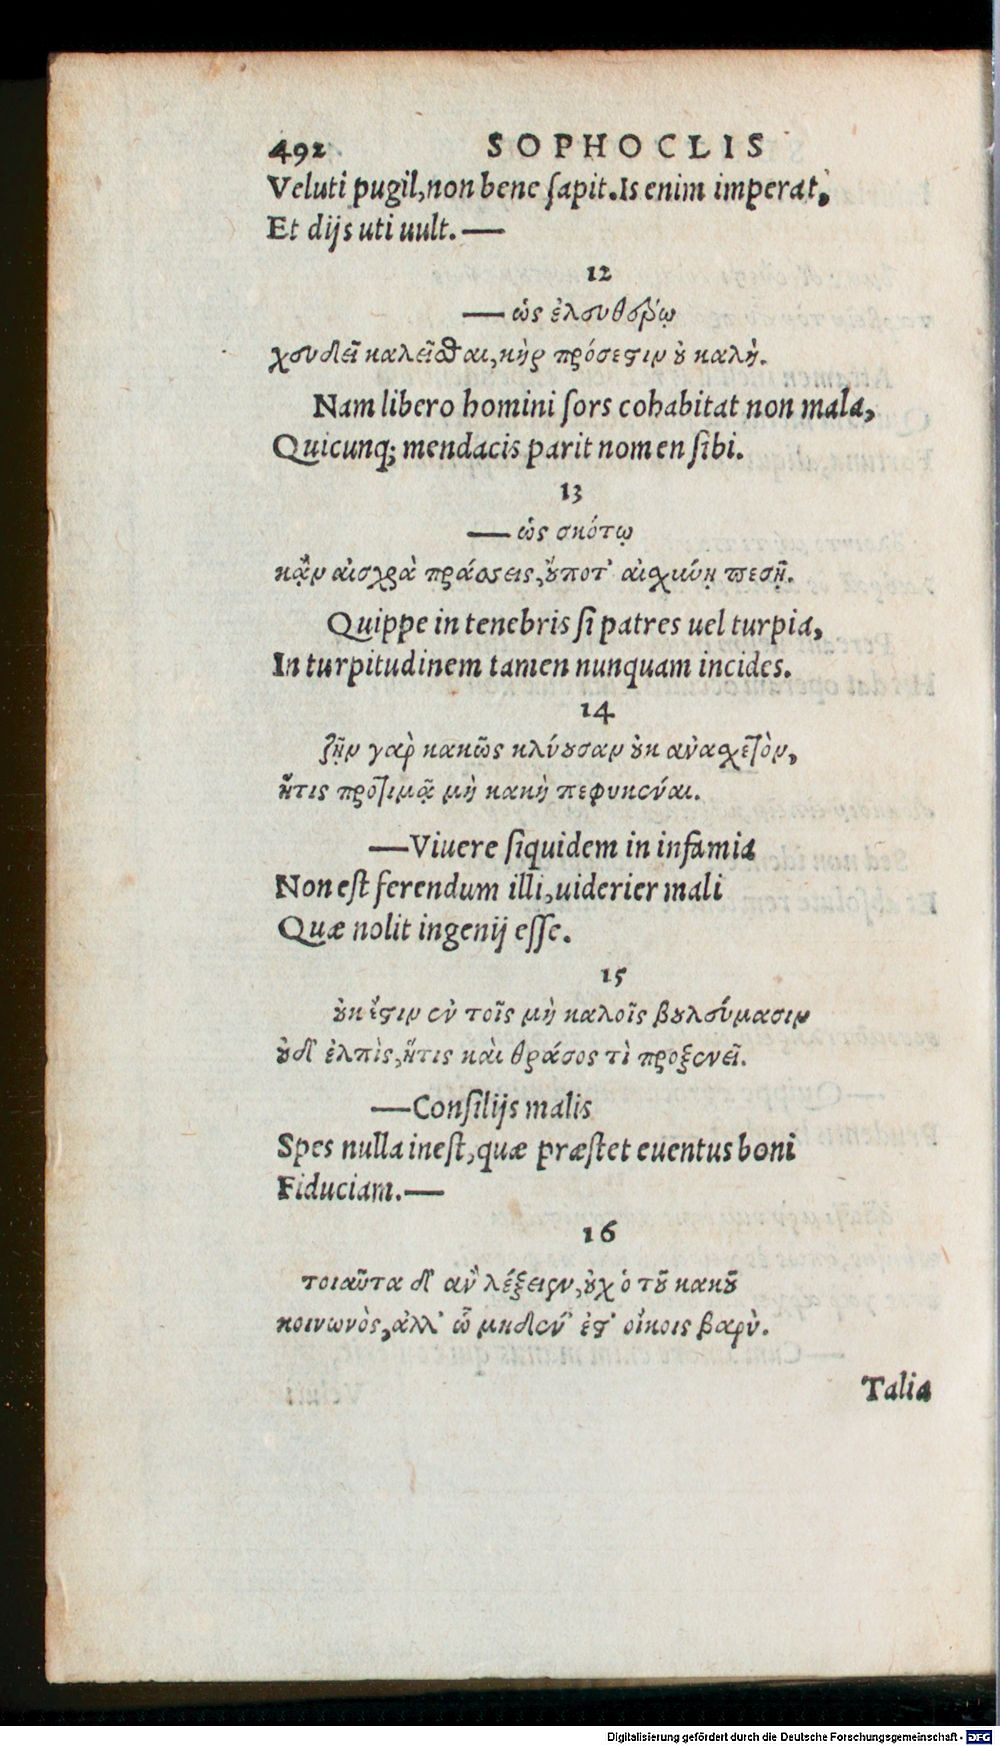 492 SOPHOCLIS
Veluti pugil, non bene sapit. Is enim imperat,
Et dijs uti uult. —
12
— ὡς ἐλευθέρῳ
χευδεῖ καλεῖσθαι, κὴρ πρόσεστιν οὐ καλὴ.
Nam libero homini sors cohabitat non mala,
Quicunq; mendacis parit nomen sibi.
13
— ὡς σκότῳ
κᾂν αἰσχρὰ πράσσεις, οὔποτ' αἰσχύνῃ πεσῇ.
Quippe in tenebris si patres uel turpia,
In turpitudinem tamen nunquam incides.
14
ζῇν γὰρ κακῶς κλύουσαν οὐκ ἀνασχετὸν,
ἥτις προτιμᾷ μὴ κακὴ πεφυκέναι.
—Viuere siquidem in infamia
Non est ferendum illi, uiderier mali
Quæ nolit ingenij esse.
15
οὐκ ἔστιν ἐν τοῖς μὴ καλοῖς βουλεύμασιν
οὐδ' ἐλπὶς, ἥτις καὶ θράσος τὶ προξενεῖ.
—Consilijs malis
Spes nulla inest, quæ præstet euentus boni
Fiduciam.—
16
τοιαῦτα δ' ἂν λέξειεν, οὐχ ὁ τοῦ κακοῦ
κοινωνὸς, ἀλλ' ᾧ μηδὲν ἐστ' οἴκοις βαρὺ.
Talia
Digitalisierung gefördert durch die Deutsche Forschungsgemeinschaft - DFG